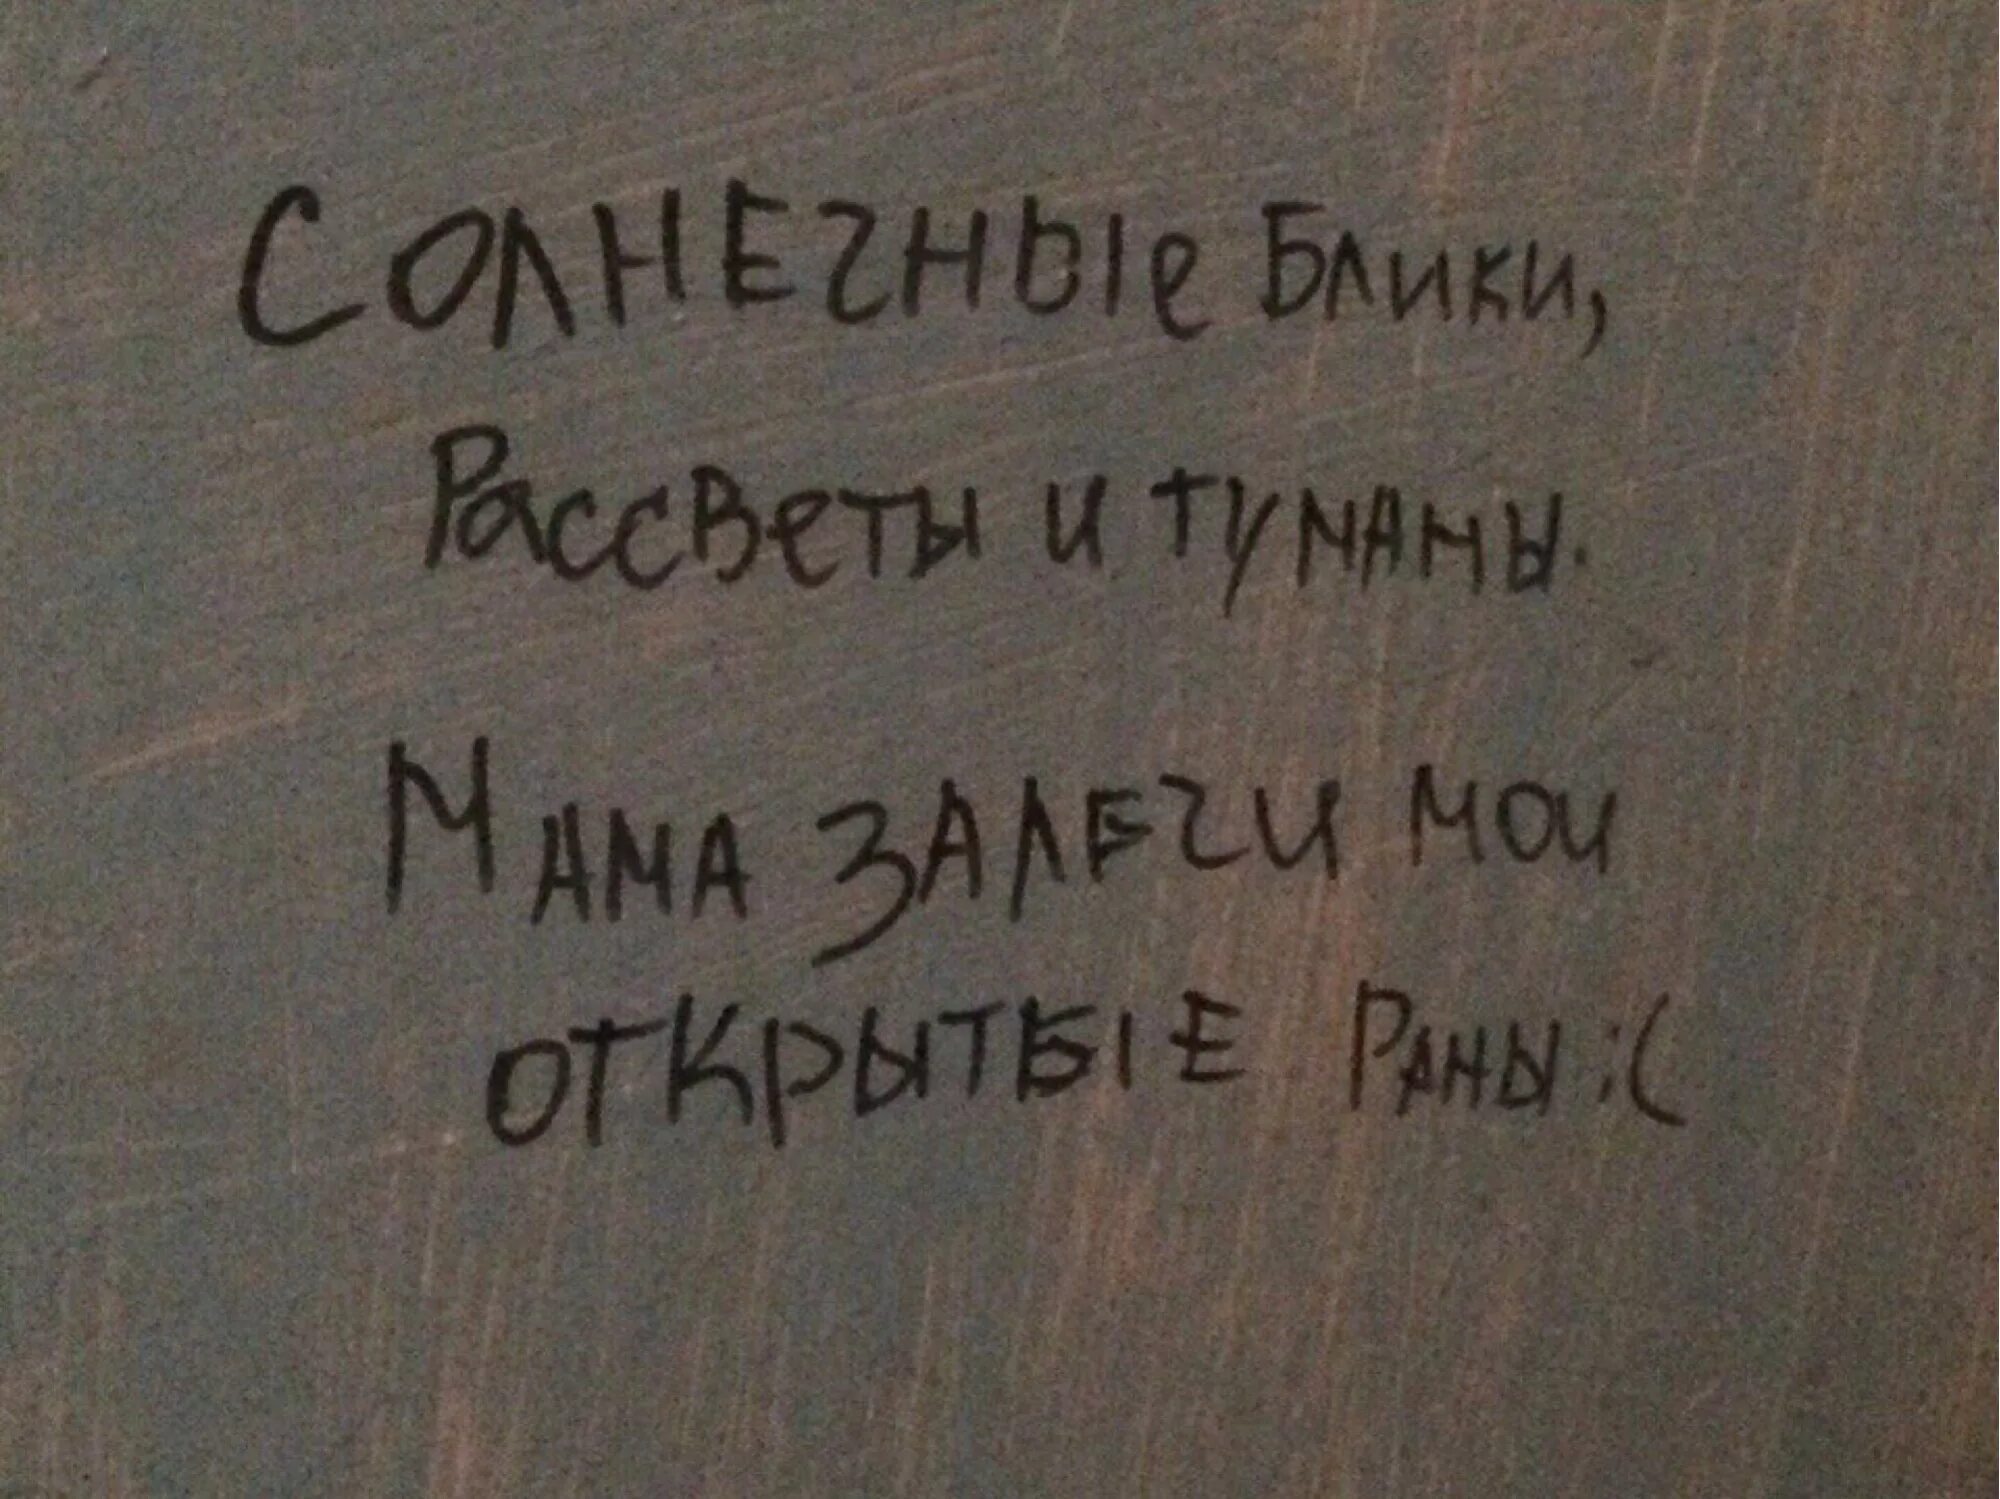 Солнечные Блики,
Рассветы и туманы.
Мама залечи мои
открытые Раны :(